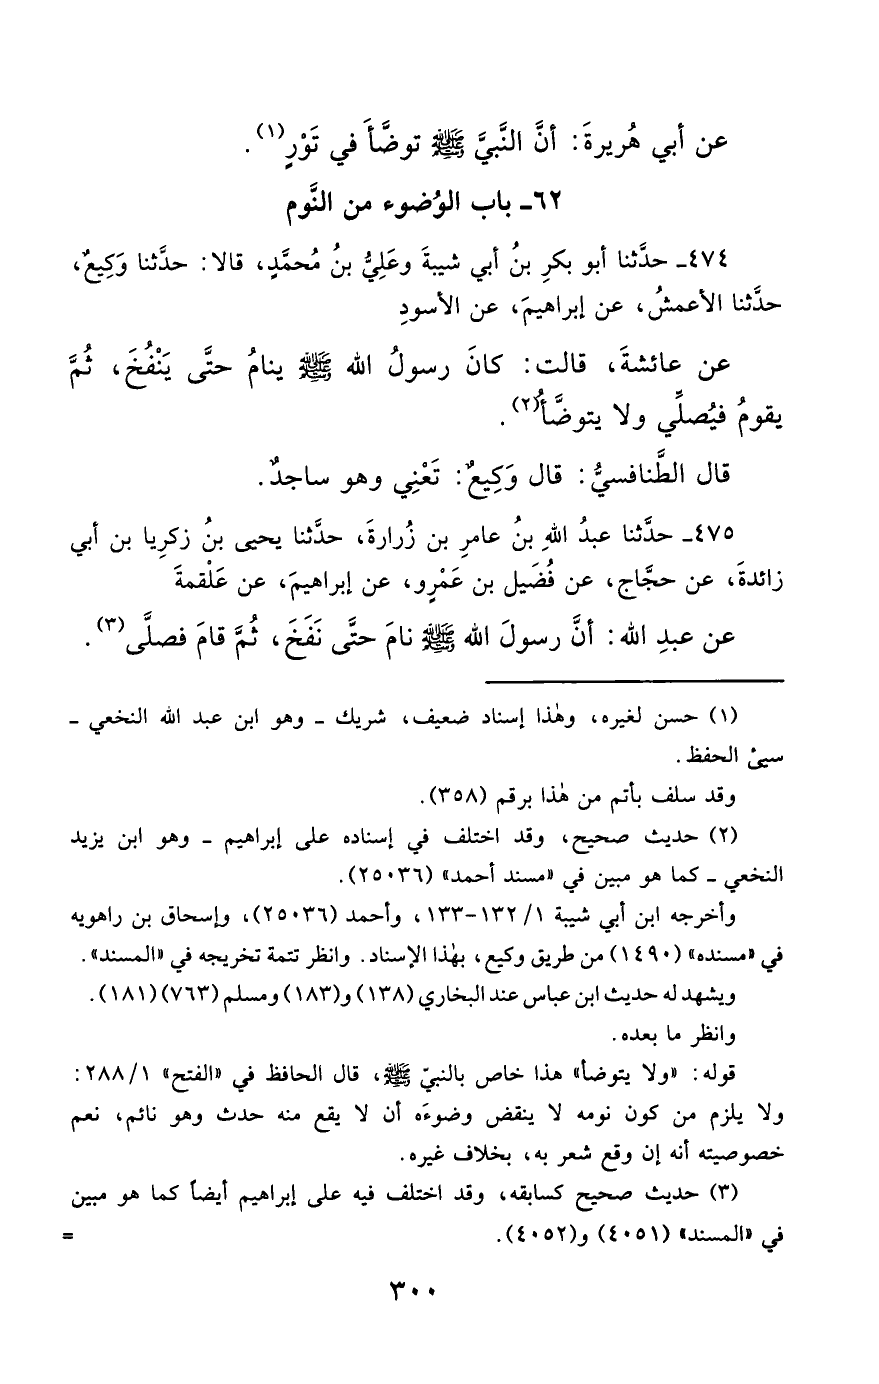 عن أبي هُريرةَ: أنَّ النَّبيَّ ﷺ توضَّأَ في تَوْرٍ(١).
٦٢ـ باب الوُضوء من النَّوم
٤٧٤ـ حدَّثنا أبو بكرِ بنُ أبي شيبةَ وعَلِيُّ بنُ مُحمَّدٍ، قالا: حدَّثنا وَكِيعٌ،
حدَّثنا الأعمشُ، عن إبراهيمَ، عن الأسودِ
عن عائشةَ، قالت: كانَ رسولُ الله ﷺ ينامُ حتَّى يَنْفُخَ، ثُمَّ
يقومُ فيُصلِّي ولا يتوضَّأُ(٢).
قال الطَّنافسيُّ: قال وَكِيعٌ: تَعْنِي وهو ساجدٌ.
٤٧٥ـ حدَّثنا عبدُ اللهِ بنُ عامرِ بن زُرارةَ، حدَّثنا يحيى بنُ زكرِيا بن أبي
زائدةَ، عن حجَّاج، عن فُضَيل بن عَمْرٍو، عن إبراهيمَ، عن عَلْقمةَ
عن عبدِ الله: أنَّ رسولَ الله ﷺ نامَ حتَّى نَفَخَ، ثُمَّ قامَ فصلَّى(٣).
(١) حسن لغيره، وهٰذا إسناد ضعيف، شريك ـ وهو ابن عبد الله النخعي ـ
سيئ الحفظ.
وقد سلف بأتم من هٰذا برقم (٣٥٨).
(٢) حديث صحيح، وقد اختلف في إسناده على إبراهيم ـ وهو ابن يزيد
النخعي ـ كما هو مبين في «مسند أحمد» (٢٥٠٣٦).
وأخرجه ابن أبي شيبة ١/ ١٣٢-١٣٣، وأحمد (٢٥٠٣٦)، وإسحاق بن راهويه
في «مسنده» (١٤٩٠) من طريق وكيع، بهٰذا الإسناد. وانظر تتمة تخريجه في «المسند».
ويشهد له حديث ابن عباس عند البخاري (١٣٨) و(١٨٣) ومسلم (٧٦٣) (١٨١).
وانظر ما بعده.
قوله: «ولا يتوضأ» هذا خاص بالنبيّ ﷺ، قال الحافظ في «الفتح» ١/ ٢٨٨:
ولا يلزم من كون نومه لا ينقض وضوءَه أن لا يقع منه حدث وهو نائم، نعم
خصوصيته أنه إن وقع شعر به، بخلاف غيره.
(٣) حديث صحيح كسابقه، وقد اختلف فيه على إبراهيم أيضاً كما هو مبين
في «المسند» (٤٠٥١) و(٤٠٥٢). =
٣٠٠